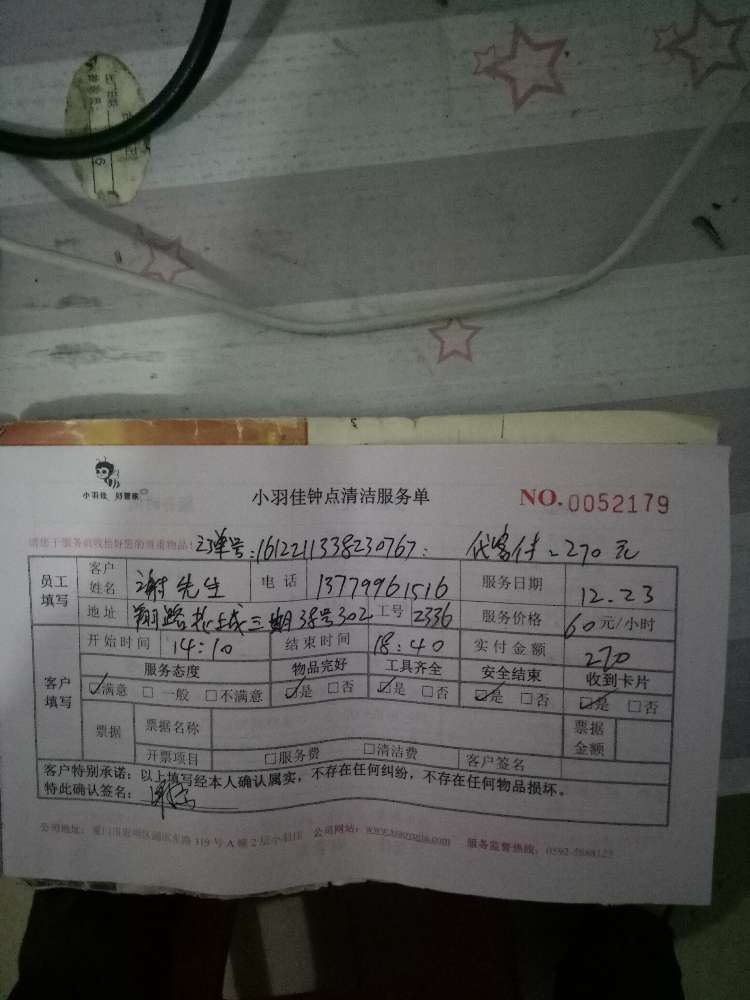 小羽佳 好管家
小羽佳钟点清洁服务单
NO.0052179
请您于服务前收拾好您的贵重物品!
订单号:1612211338230767: 代客付:270元
员工填写
客户姓名 谢先生 电话 13779961516 服务日期 12.23
地址 三期38号302 工号 2336 服务价格 60元/小时
开始时间 14:10 结束时间 18:40 实付金额 270
客户填写
服务态度 物品完好 工具齐全 安全结束 收到卡片
☑满意 □一般 □不满意 ☑是 □否 ☑是 □否 ☑是 □否 ☑是 □否
票据 票据名称 票据金额
开票项目 □服务费 □清洁费 客户签名
客户特别承诺:以上填写经本人确认属实,不存在任何纠纷,不存在任何物品损坏。
特此确认签名:
公司地址: 319号A幢2层小羽佳 公司网站: 服务监督热线: